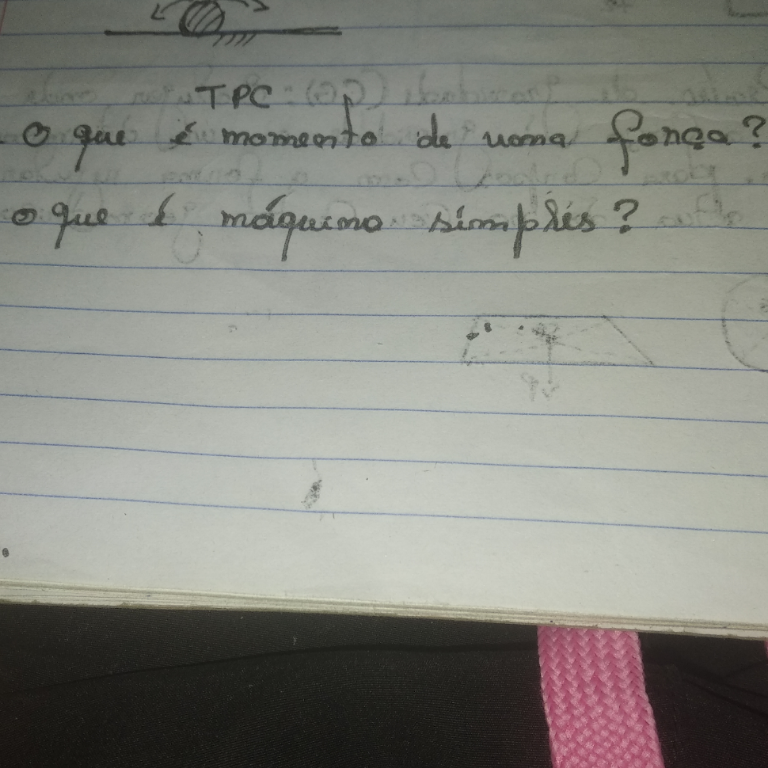 TPC
O que é momento de uma força?
O que é máquina simples?